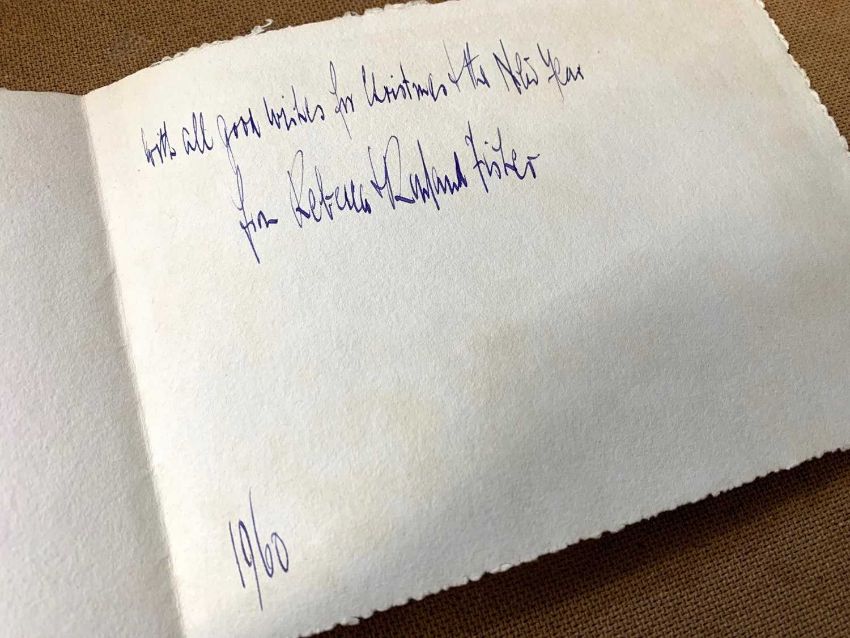 with all good wishes for Christmas & the New Year
from Rebecca & Fisher
1960